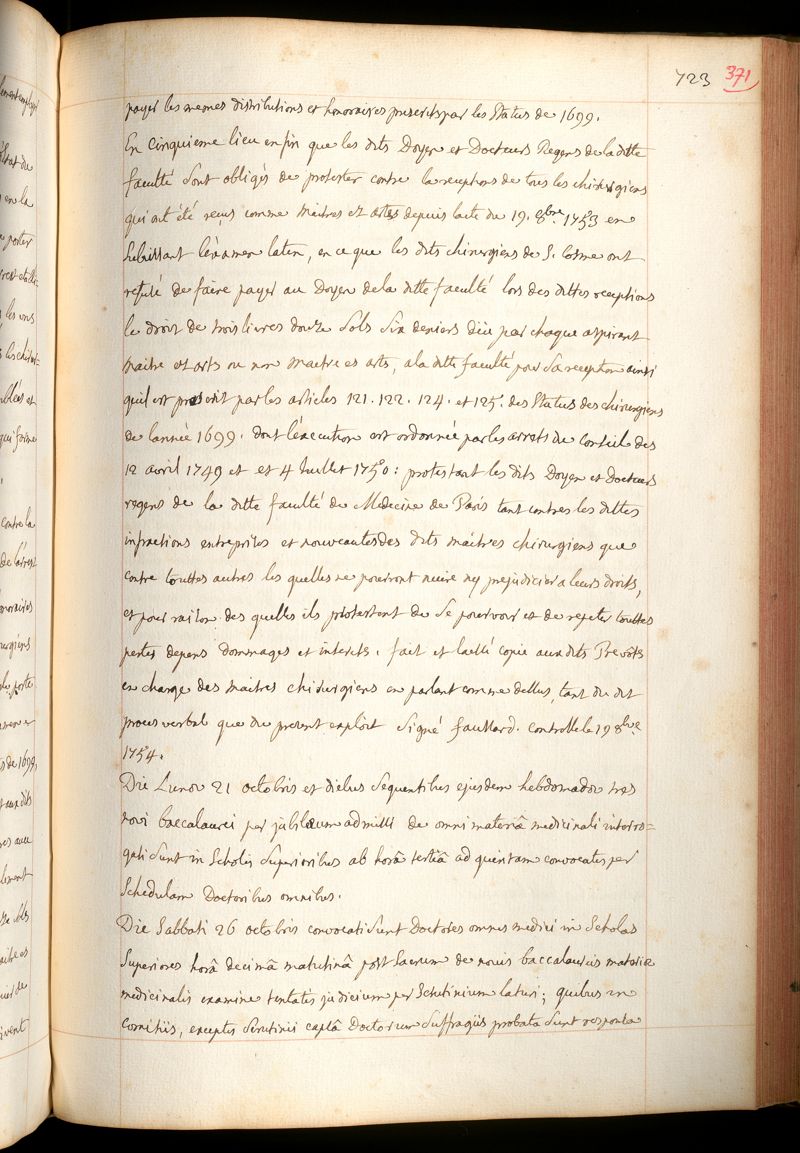 723 371
payer les mesmes distributions et honoraires prescrits par les Statuts de 1699.
En cinquieme lieu enfin que les dits Doyen et Docteurs Regens de la ditte
faculté sont obligés de protester contre la receptions de tous les chirurgiens
qui ont été reçus comme maitres et arts depuis lacte du 19. 8bre. 1753 en
subissant l'examen latin, en ce que les dits chirurgiens de S. Cosme ont
refusé de faire payer au Doyen de la ditte faculté lors des dittes receptions
le droit de trois livres douze sols six deniers due par chaque aspirant
maitre et arts ou non maitre es arts, a la ditte faculté pour sa reception ainsi
quil est prescrit par les articles 121. 122. 124. et 125. des Statuts des chirurgiens
de l'année 1699. dont l'execution est ordonnée par les arrets du conseil des
12 avril 1749 et et 4 Juillet 1750: protestant les dits Doyen et Docteurs
regens de la ditte faculté de Medecine de Paris tant contres les dittes
infractions entreprises et nouveautes des dits maitres chirurgiens que
contre touttes autres les quelles ne pourront nuire ny prejudicier a leurs droits,
et pour raison des quelles ils protestent de se pourvoir et de repeter touttes
pertes depens dommages et interets. fait et laissé copie aux dits Prevôts
en charge des maitres chirurgiens en parlant comme dessus, tant du dit
proces verbal que du present exploit signé faullard. controllé le 19 8bre
1754.
Die Lunæ 21 octobris et diebus sequentibus ejusdem hebdomadæ tres
novi baccalaurei per jubilæum admissi de omni materiâ medicinali interro=
gati sunt in scholis superioribus ab horâ tertiâ ad quintam convocatis per
schedulam Doctoribus omnibus.
Die Sabbati 26 octobris convocati sunt Doctores omnes medici in Scholas
superiores horâ decimâ matutinâ post sacrum de novis baccalaureis materiæ
medicinalis examine tentatis judicium per scrutinium laturi; quibus in
comitiis, exceptis scrutinii captâ Doctorum suffragiis probata sunt responsa